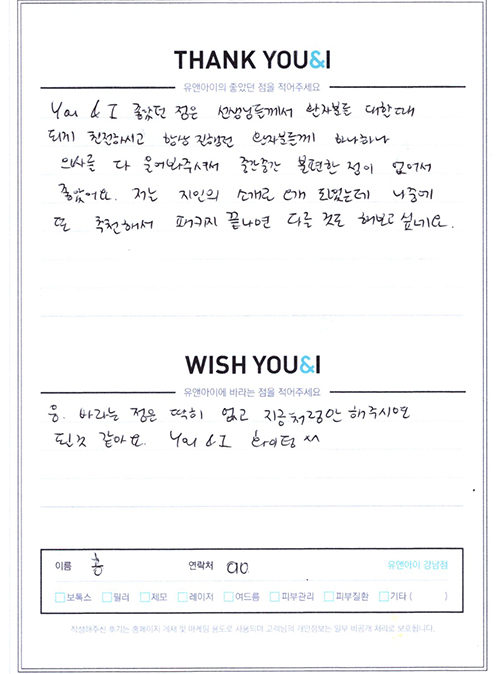 THANK YOU&I
유앤아이의 좋았던 점을 적어주세요
You & I 좋았던 점은 선생님들께서 환자분들 대한때
되게 친절하시고 항상 진행전 환자분들께 하나하나
의사를 다 물어봐주셔서 중간중간 불편한 점이 없어서
좋았어요. 저는 지인의 소개로 오게 되었는데 나중에
또 추천해서 패키지 끝나면 다른 것도 해보고 싶네요.
WISH YOU&I
유앤아이에 바라는 점을 적어주세요
음. 바라는 점은 딱히 없고 지금처럼만 해주시면
될것 같아요. You & I 화이팅 ^^
이름 홍 연락처 010 유앤아이 강남점
보톡스 필러 제모 레이저 여드름 피부관리 피부질환 기타 ( )
작성해주신 후기는 홈페이지 게재 및 마케팅 용도로 사용되며 고객님의 개인정보는 일부 비공개 처리로 보호됩니다.